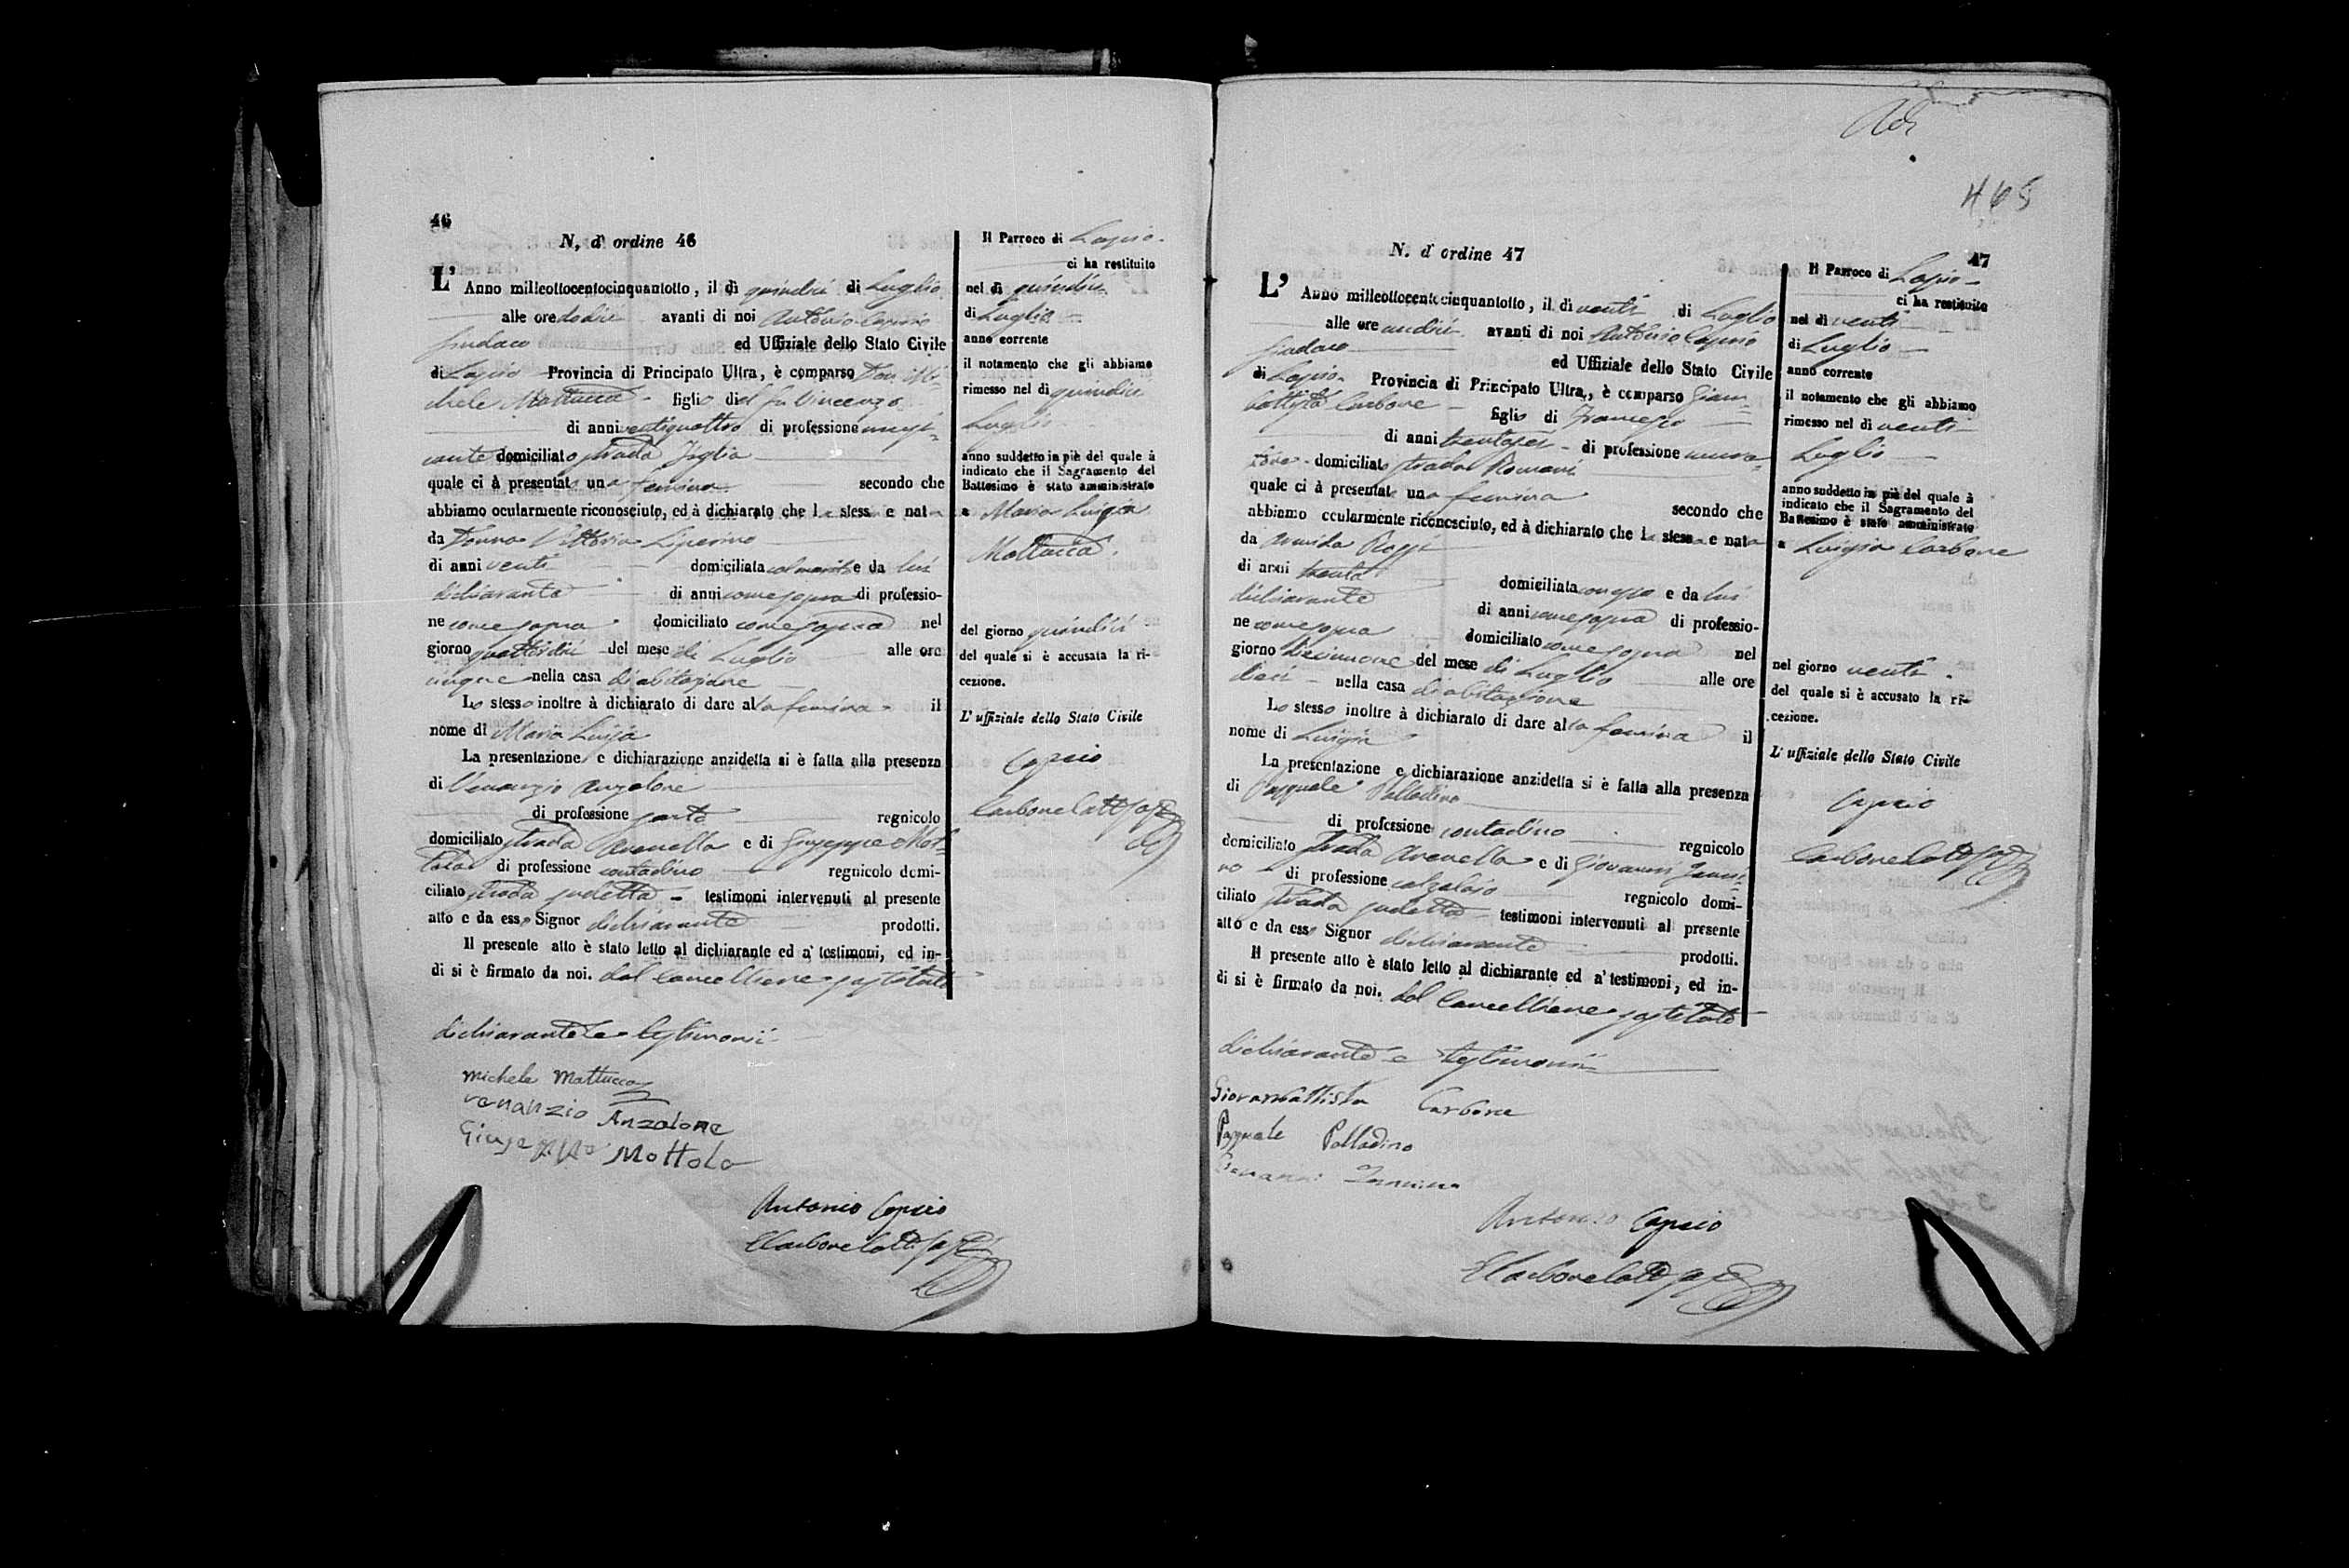 46
N, d' ordine 46
L' Anno milleottocentocinquantotto, il dì quindici di Luglio
alle ore dodici avanti di noi Antonio Caprio
Sindaco ed Uffiziale dello Stato Civile
di Lapio Provincia di Principato Ultra, è comparso Don Mi-
chele Mattucci figlio del fu Vincenzo
di anni ventiquattro di professione
domiciliato strada
quale ci à presentato una femina secondo che
abbiamo ocularmente riconosciuto, ed à dichiarato che la stess e nata
da Donna Vittoria
di anni venti domiciliata col marito e da lui
dichiarante di anni come sopra di professio-
ne come sopra domiciliato come sopra nel
giorno quattordici del mese di Luglio alle ore
cinque nella casa di abitazione
Lo stesso inoltre à dichiarato di dare alla femina il
nome di Maria Luigia
La presentazione e dichiarazione anzidetta si è fatta alla presenza
di Venanzio Anzalone
di professione sarto regnicolo
domiciliato strada Avenella e di Giuseppe Mot-
tola di professione contadino regnicolo domi-
ciliato strada testimoni intervenuti al presente
atto e da esso Signor dichiarante prodotti.
Il presente atto è stato letto al dichiarante ed a' testimoni, ed in-
di si è firmato da noi. dal Cancelliere sostituto
dichiarante e testimonii
Michele Mattucci
venanzio Anzalone
Giuseppe Mottola
Antonio Caprio
Il Parroco di Lapio
ci ha restituito
nel dì quindici
di Luglio
anno corrente
il notamento che gli abbiamo
rimesso nel dì quindici
Luglio
anno suddetto in piè del quale à
indicato che il Sagramento del
Battesimo è stato amministrato
a Maria Luigia
Mattucci
del giorno quindici
del quale si è accusata la ri-
cezione.
L' uffiziale dello Stato Civile
Caprio
465
47
N. d' ordine 47
L' Anno milleottocentocinquantotto, il dì venti di Luglio
alle ore undici avanti di noi Antonio Caprio
Sindaco ed Uffiziale dello Stato Civile
di Lapio Provincia di Principato Ultra, è comparso Giam-
battista Carbone figlio di Francesco
di anni trentasei di professione mura-
tore domiciliato strada Romani
quale ci à presentato una femina secondo che
abbiamo ocularmente riconosciuto, ed à dichiarato che la stessa e nata
da Armida Rossi
di anni trenta domiciliata con esso e da lui
dichiarante di anni come sopra di professio-
ne come sopra domiciliato come sopra nel
giorno diciannove del mese di Luglio alle ore
dieci nella casa di abitazione
Lo stesso inoltre à dichiarato di dare alla femina il
nome di Luigia
La presentazione e dichiarazione anzidetta si è fatta alla presenza
di Pasquale Palladino
di professione contadino regnicolo
domiciliato strada Avenella e di Giovanni
di professione calzolaio regnicolo domi-
ciliato strada testimoni intervenuti al presente
atto e da esso Signor dichiarante prodotti.
Il presente atto è stato letto al dichiarante ed a' testimoni, ed in-
di si è firmato da noi. dal Cancelliere sostituto
dichiarante e testimonii
Giovambattista Carbone
Pasquale Palladino
Giovanni
Antonio Caprio
Il Parroco di Lapio
ci ha restituito
nel dì venti
di Luglio
anno corrente
il notamento che gli abbiamo
rimesso nel dì venti
Luglio
anno suddetto in piè del quale à
indicato che il Sagramento del
Battesimo è stato amministrato
a Luigia Carbone
nel giorno venti
del quale si è accusato la ri-
cezione.
L' uffiziale dello Stato Civile
Caprio